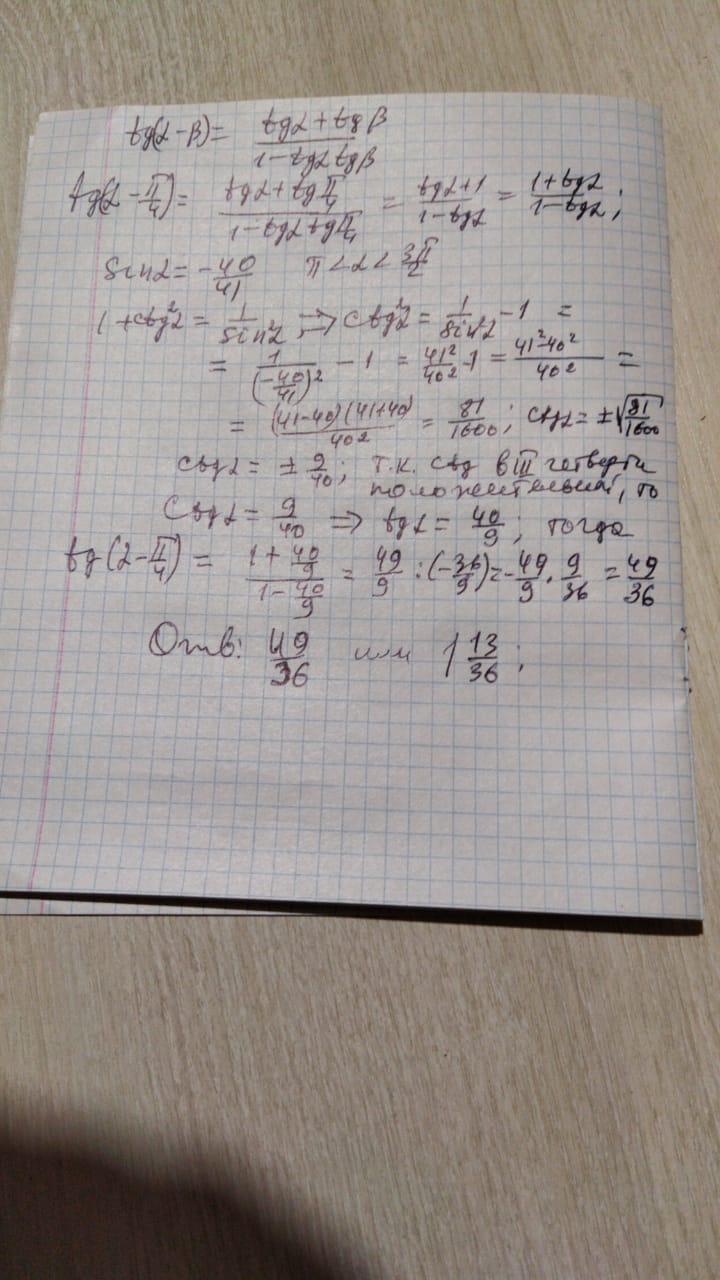 tg(α - β) = (tgα + tgβ)/(1 - tgα tgβ)
tg(α - π/4) = (tgα + tg π/4)/(1 - tgα tg π/4) = (tgα + 1)/(1 - tgα) = (1 + tgα)/(1 - tgα);
sinα = -40/41 π < α < 3π/2
1 + ctg²α = 1/sin²α, => ctg²α = 1/sin²α - 1 =
= 1/(-40/41)² - 1 = 41²/40² - 1 = (41² - 40²)/40² =
= (41-40)(41+40)/40² = 81/1600; ctgα = ±√(81/1600)
ctgα = ± 9/40; т.к. ctg в III четверти
положительный, то
Ctgα = 9/40 => tgα = 40/9; тогда
tg(α - π/4) = (1 + 40/9)/(1 - 40/9) = 49/9 : (-36/9) = -49/9 · 9/36 = 49/36
Отв: 49/36 или 1 13/36;